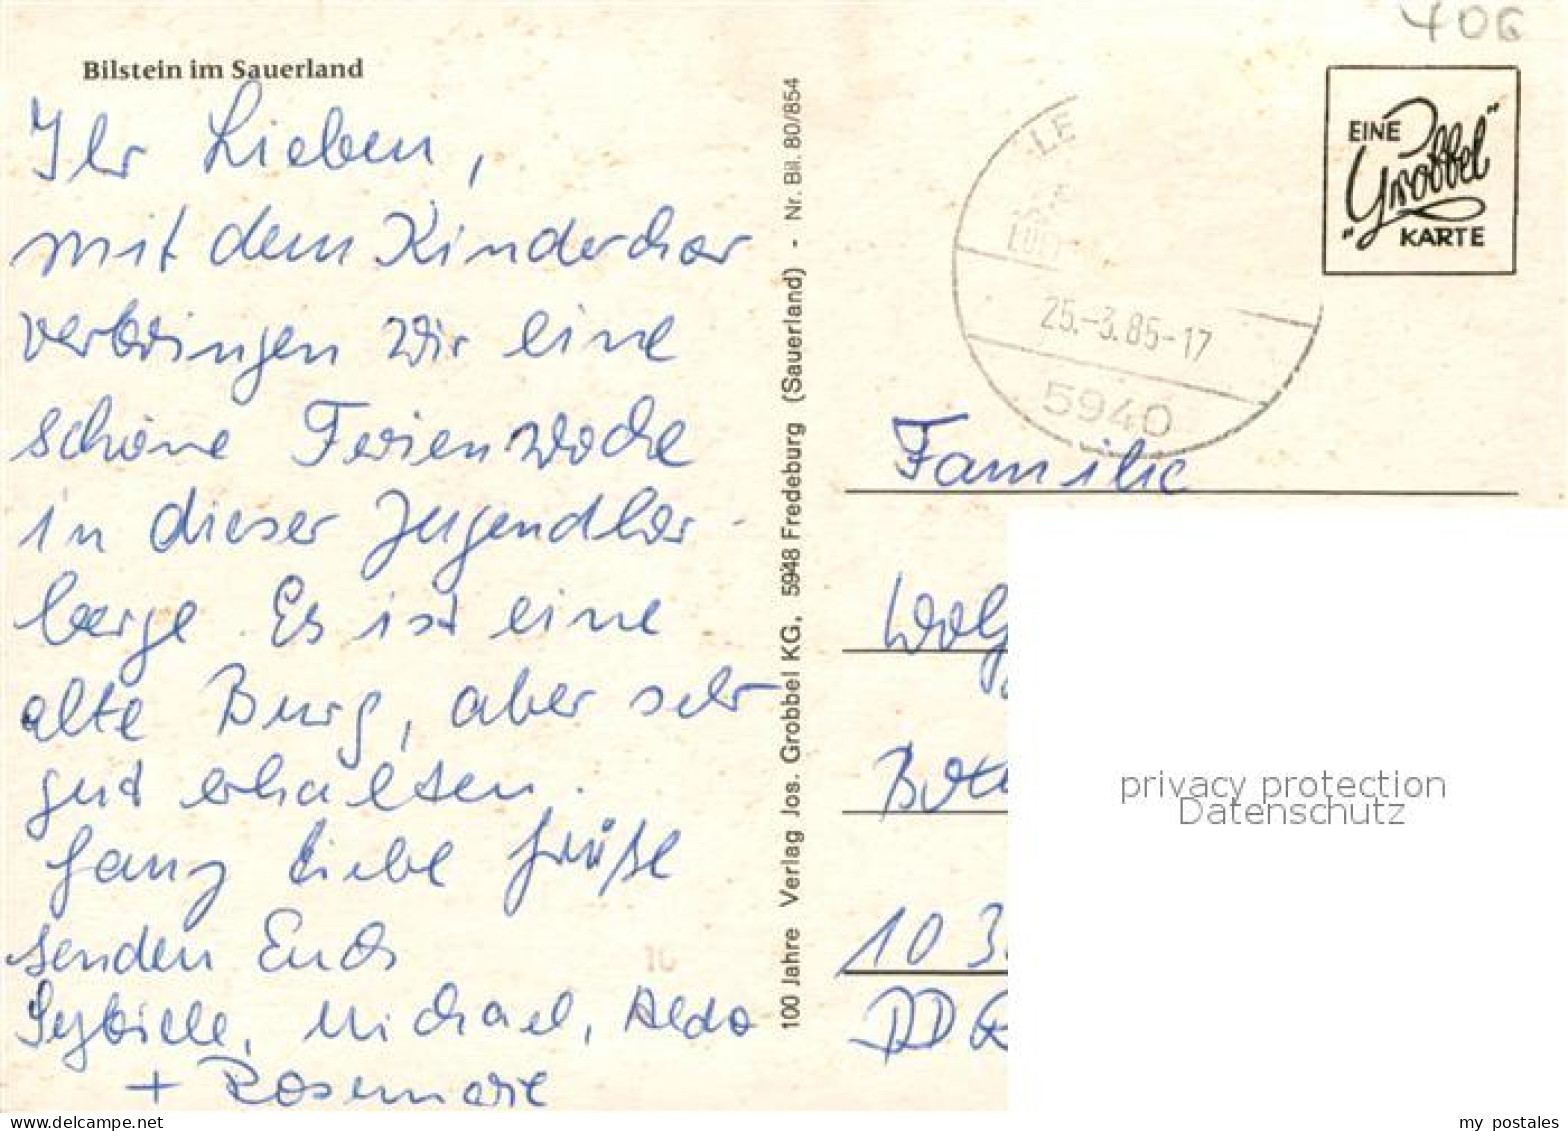 Bilstein im Sauerland
Ihr Lieben,
mit dem Kinderchor
verbringen wir eine
schöne Ferienwoche
in dieser Jugendher-
berge. Es ist eine
alte Burg, aber sehr
gut erhalten.
Ganz liebe Grüße
senden Euch
Sybille, Michael, Aldo
+ Rosemarie
100 Jahre Verlag Jos. Grobbel KG, 5948 Fredeburg (Sauerland) - Nr. Bil. 80/854
406
EINE
"Grobbel"
KARTE
LE
25.-3.85-17
5940
Familie
Wolfg
103
DDR
privacy protection
Datenschutz
www.delcampe.net
my_postales